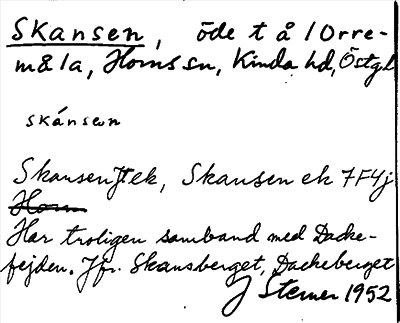 Skansen, öde t å 1 Orre-
måla, Horns sn, Kinda hd, Östgl
skánsen
Skansen ek, Skansen ek 7F4j
Horn
Har troligen samband med Dacke-
fejden. Jfr. Skansberget, Dackeberget
J Sterner 1952